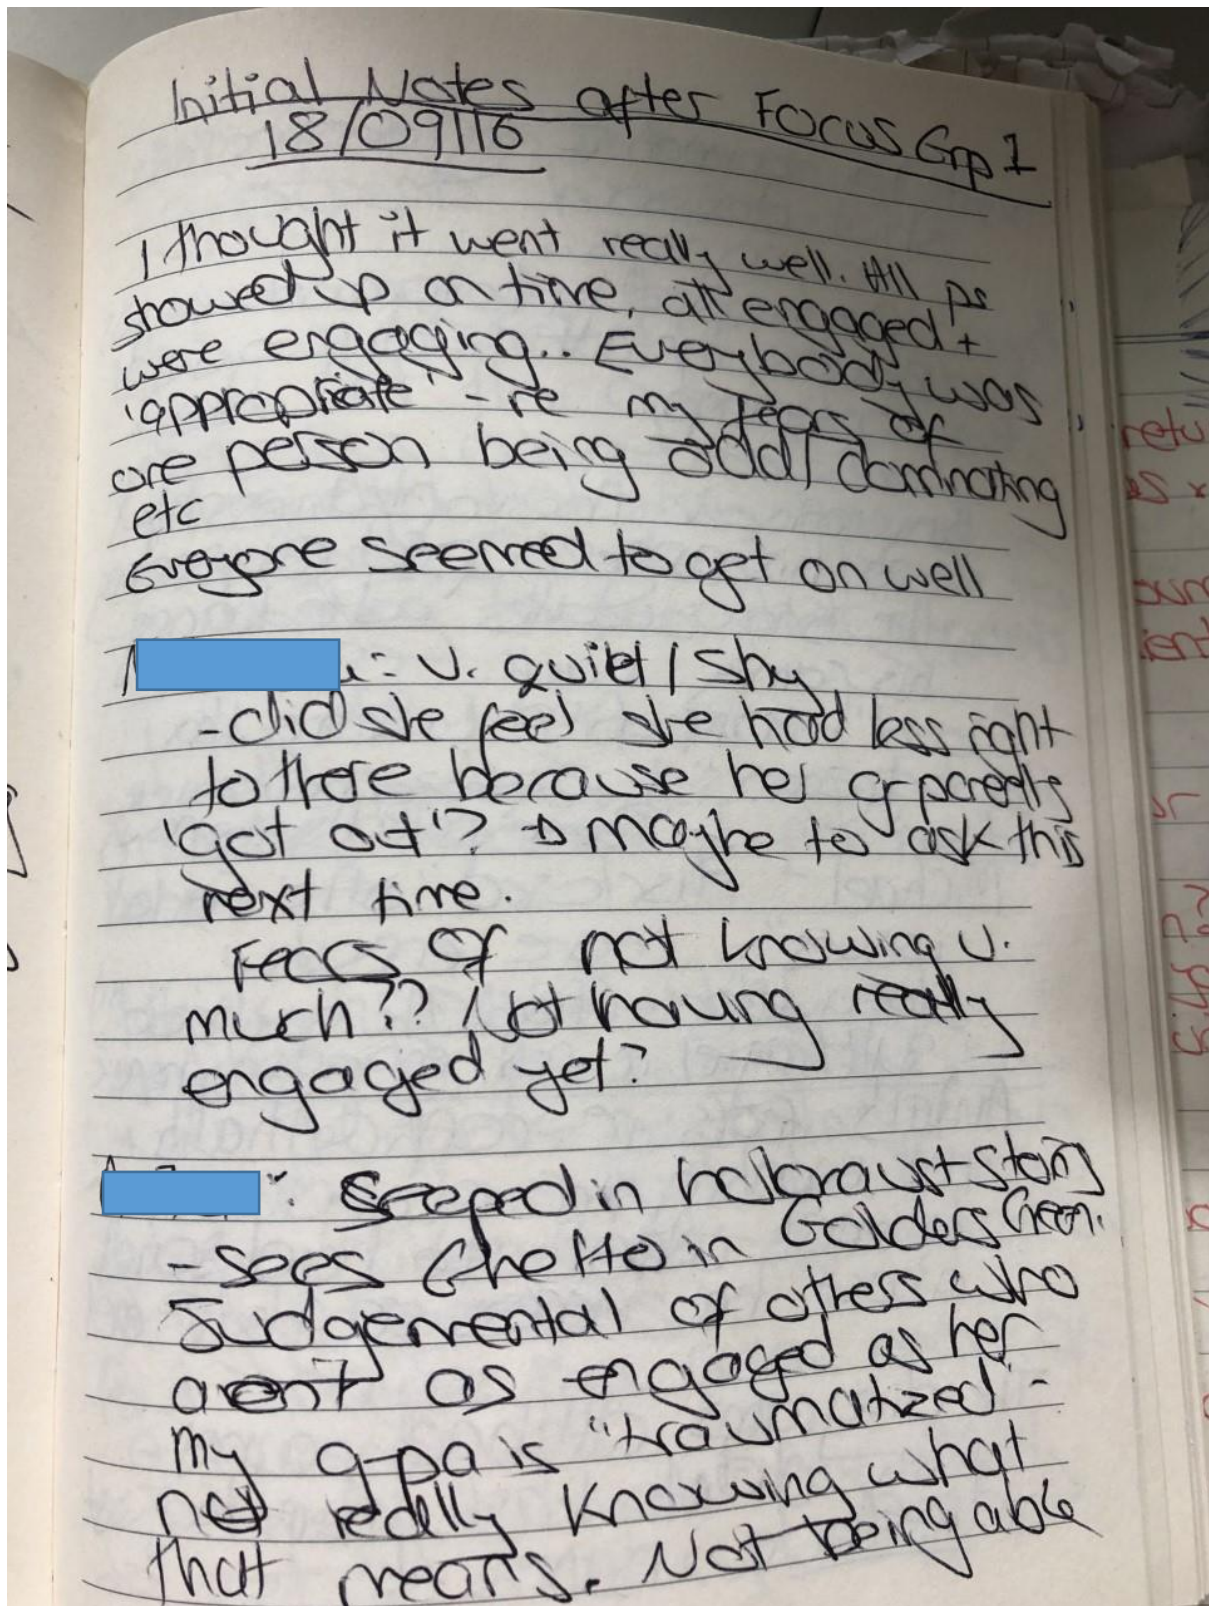 Initial Notes after Focus Grp 1
18/09/16
I thought it went really well. All ps
showed up on time, all engaged +
were engaging.. Everybody was
'appropriate' - re my fears of
one person being odd/dominating
etc
Everyone seemed to get on well
: v. quiet/shy
- did she feel she had less right
to there because her grparents
'got out'? → maybe to ask this
next time.
Fears of not knowing v.
much?? Not having really
engaged yet?
: seeped in holocaust story
- sees Ghetto in Golders Green.
Judgemental of others who
arent as engaged as her
my g-pa is "traumatized" -
not really knowing what
that means. Not being able
retu
es
oun
ient